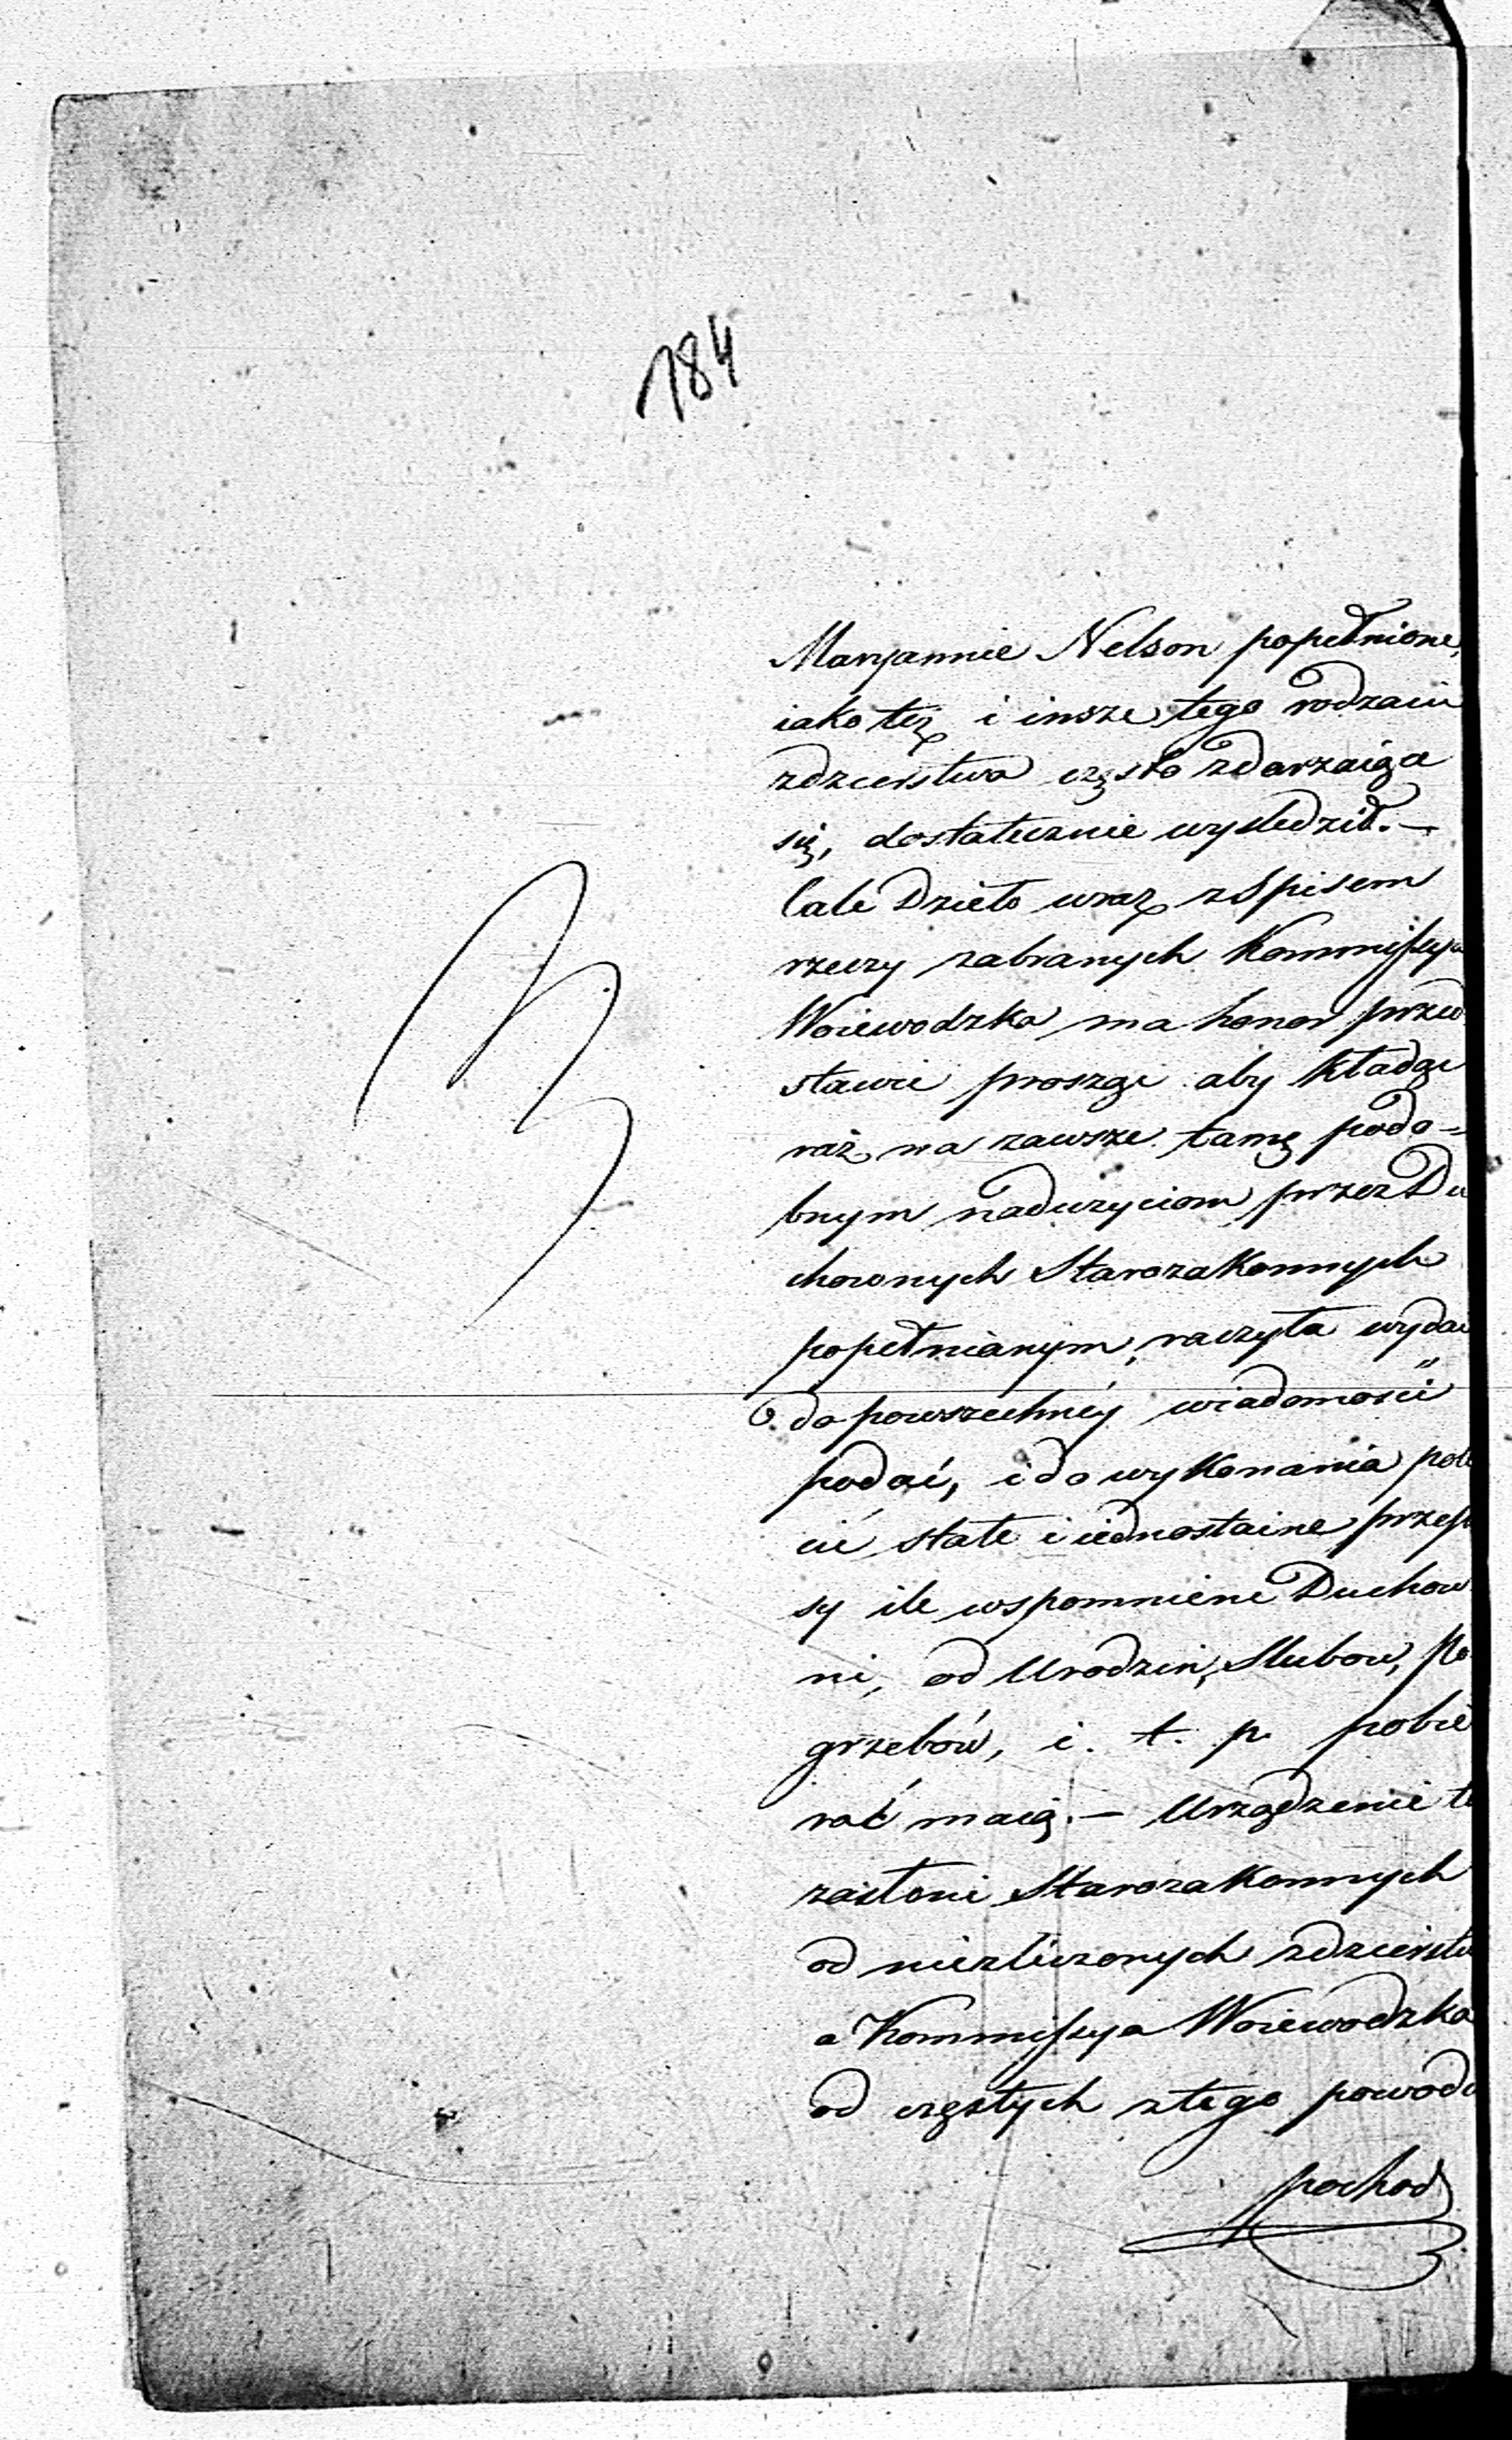 184
Maryannie Nelson popełnione,
iako też i insze tego rodzaiu
zdzierstwa często zdarzaiące
się, dostatecznie wyśledził. —
Całe Dzieło wraz z Spisem
rzeczy zabranych Kommissya
Woiewodzka ma honor przed
stawić prosząc aby kładąc
raz na zawsze tamę podo=
bnym nadużyciom przez Du
chownych Starozakonnych
popełnianym, raczyła wydać
do powszechnéy wiadomości
podać, i do wykonania pole
cić stałe i iednostaine przepi
sy ile wspomnieni Duchow
ni, od Urodzin, Slubow, Po
grzebów, i. t. p. pobie
rać maią. — Urządzenie to
zasłoni Starozakonnych
od niezliczonych zdzierstw
a Kommissya Woiewodzka
od częstych z tego powodu
pochod